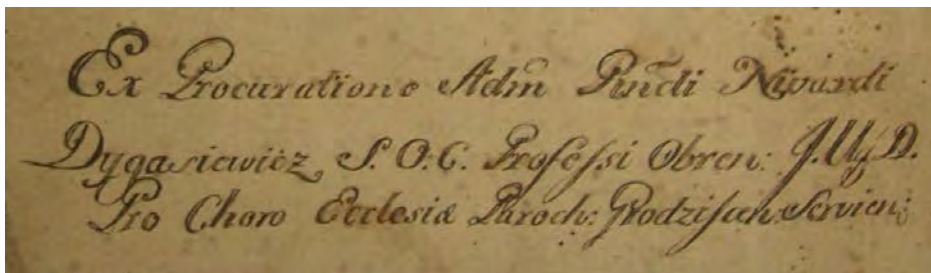 Ex Procuratione Adm Rndi Nivardi
Dygasiewicz S. O: C. Professi Obren: J. U. D.
Pro Choro Ecclesiæ Paroch: Grodziscen: Servien: